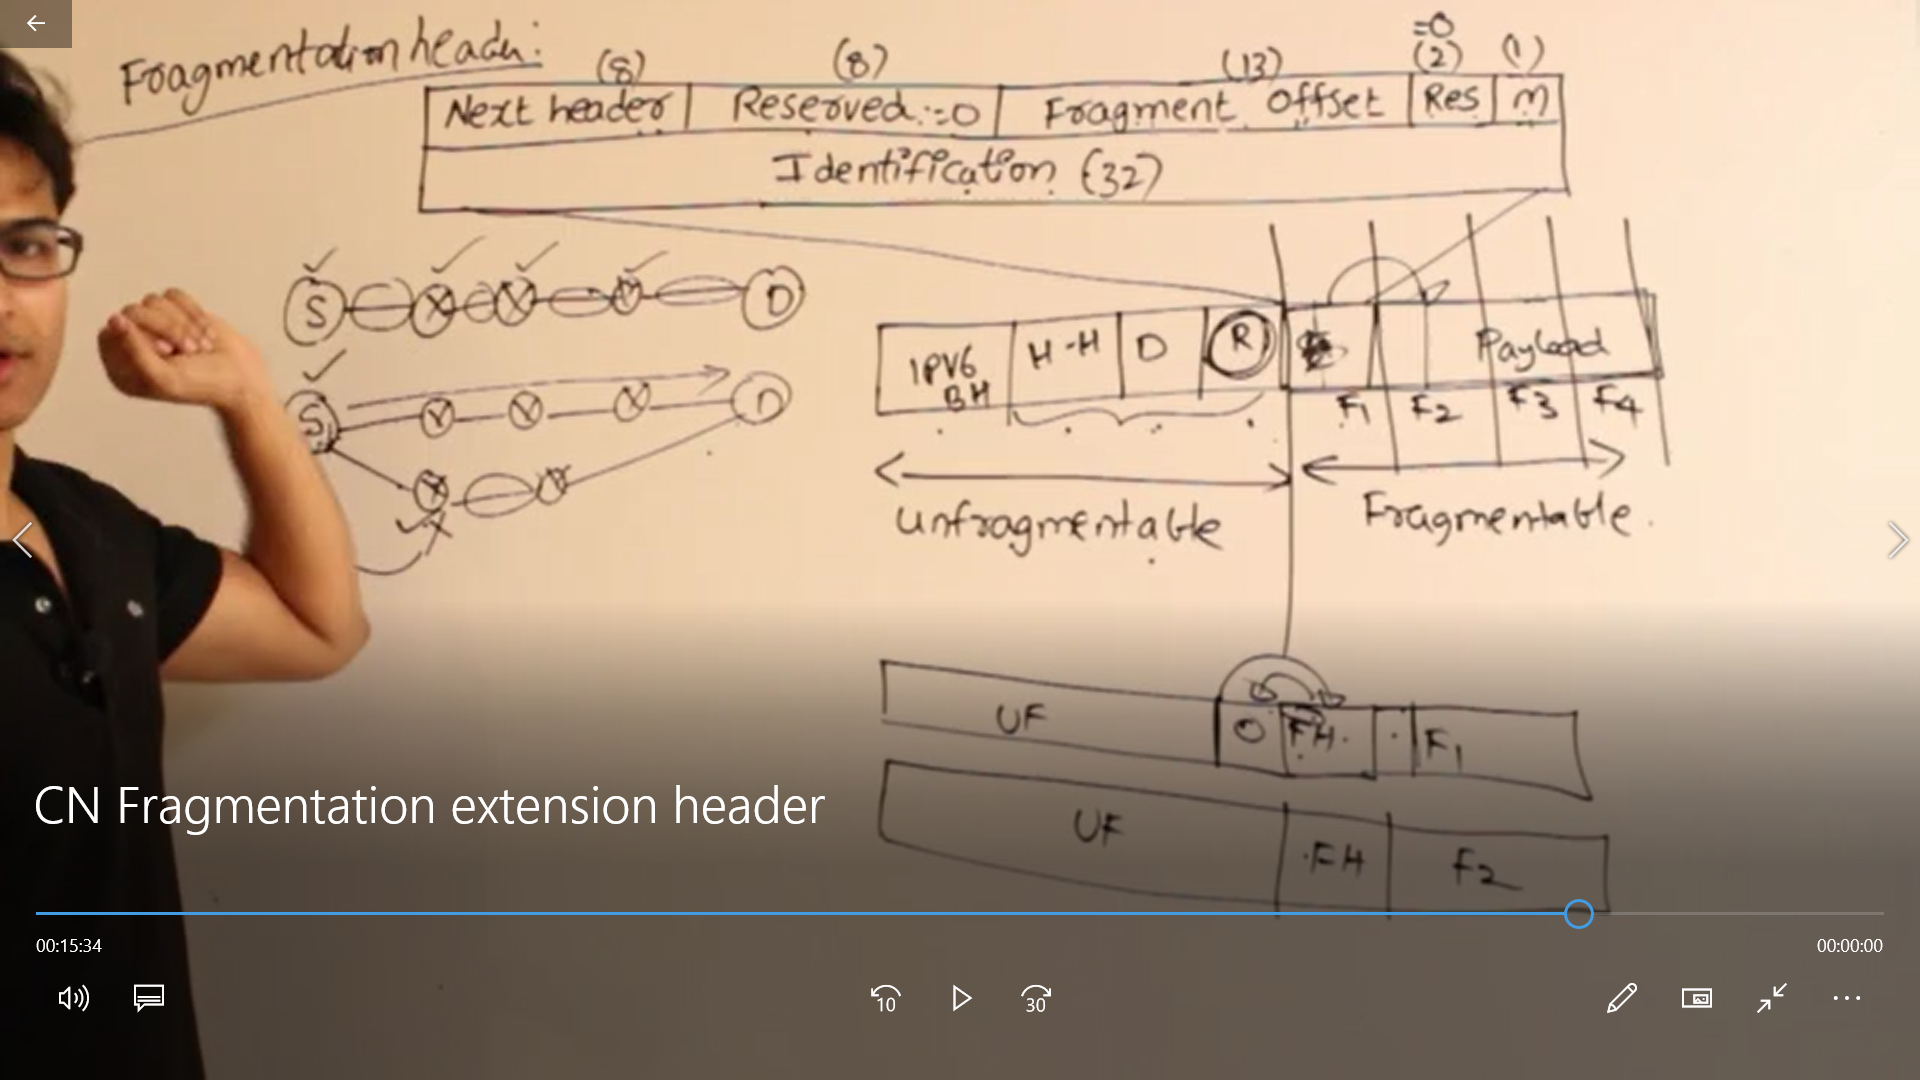 Fragmentation header:
(8) (8) (13) =0 (2) (1)
Next header Reserved:=0 Fragment Offset Res M
Identification (32)
S D
S D
IPV6 BH H-H D R Payload
F1 F2 F3 F4
unfragmentable Fragmentable.
UF O FH. F1
UF .FH F2
CN Fragmentation extension header
00:15:34 00:00:00
10 30